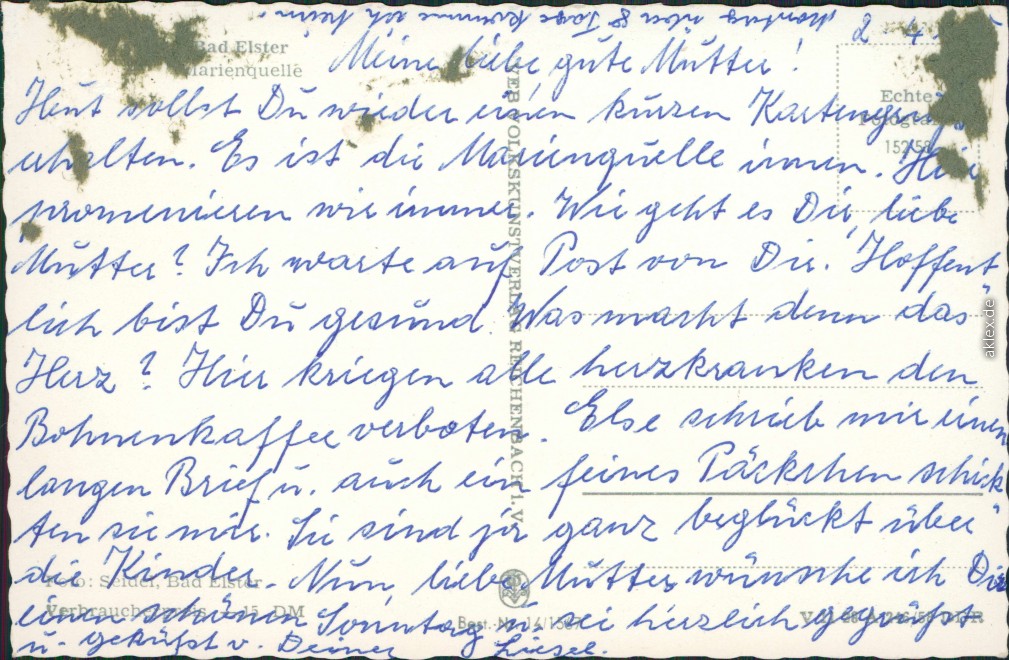 Montag über 8 Tage komme ich heim.
2 4
Bad Elster
Marienquelle
Meine liebe gute Mutter!
Heut sollst Du wieder einen kurzen Kartengruß
erhalten. Es ist die Marienquelle innen. Hier
promenieren wir immer. Wie geht es Dir, liebe
Mutter? Ich warte auf Post von Dir. Hoffent
lich bist Du gesund. Was macht denn das
Herz? Hier kriegen alle herzkranken den
Bohnenkaffee verboten. Else schrieb mir einen
langen Brief u. auch ein feines Päckchen schick
ten sie mir. Sie sind ja ganz beglückt über
die Kinder. Nun, liebe Mutter, wünsche ich Dir
einen schönen Sonntag u. sei herzlich gegrüßt
u. geküßt v. Deiner Liesel.
Echte
VEB VOLKSKUNSTVERLAG REICHENBACH i. V.
Foto: Seidel, Bad Elster
Verbraucherpreis DM
Best.-Nr. 14/
aklex.de